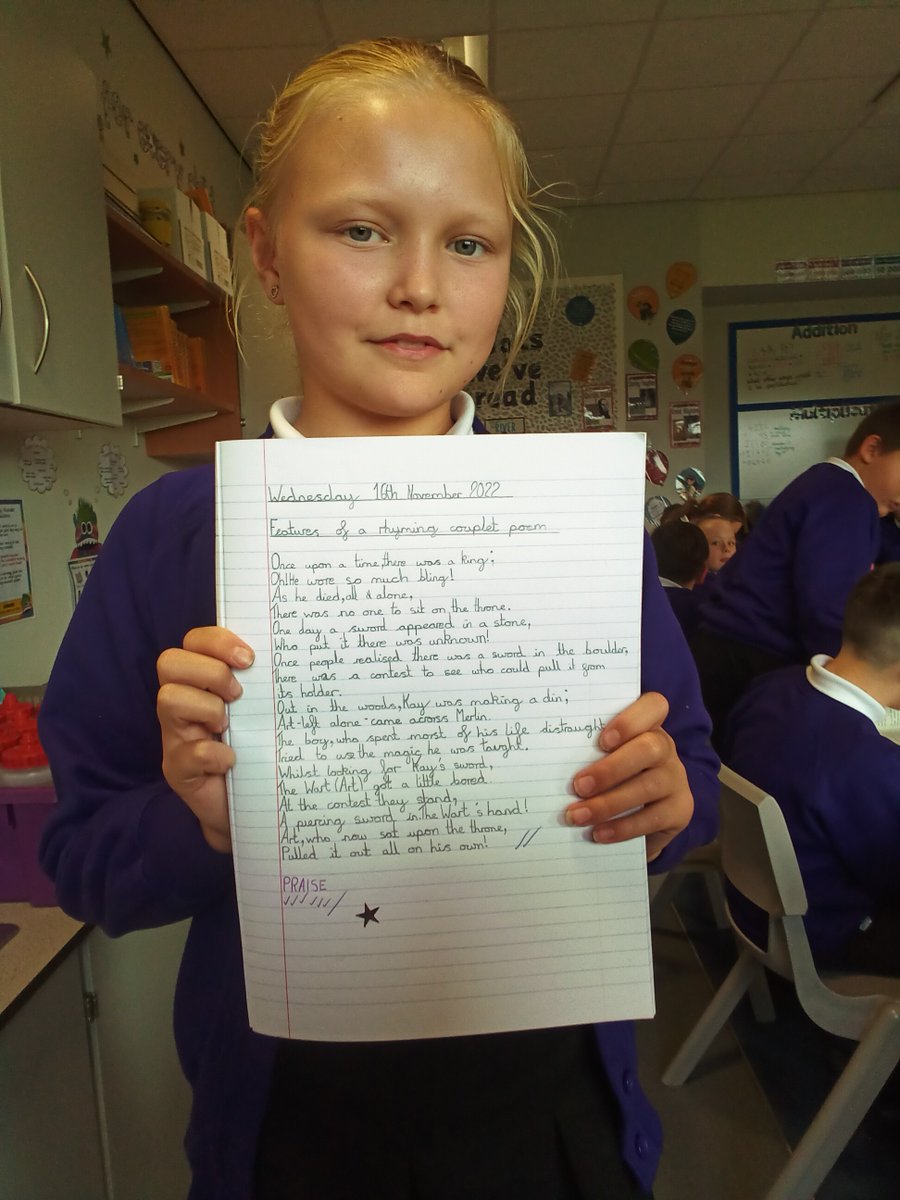 als
we've
read
RIVER
Addition
Wednesday 16th November 2022
Features of a rhyming couplet poem
Once upon a time, there was a king;
Oh! He wore so much bling!
As he died, all alone,
There was no one to sit on the throne.
One day a sword appeared in a stone,
Who put it there was unknown!
Once people realised there was a sword in the boulder,
There was a contest to see who could pull it from
its holder.
Out in the woods, Kay was making a din;
Art-left alone-came across Merlin.
The boy, who spent most of his life distraught
Tried to use the magic he was taught.
Whilst looking for Kay's sword,
The Wart (Art) got a little bored.
At the contest they stand,
A piercing sword in The Wart's hand!
Art, who now sat upon the throne,
Pulled it out all on his own!
PRAISE